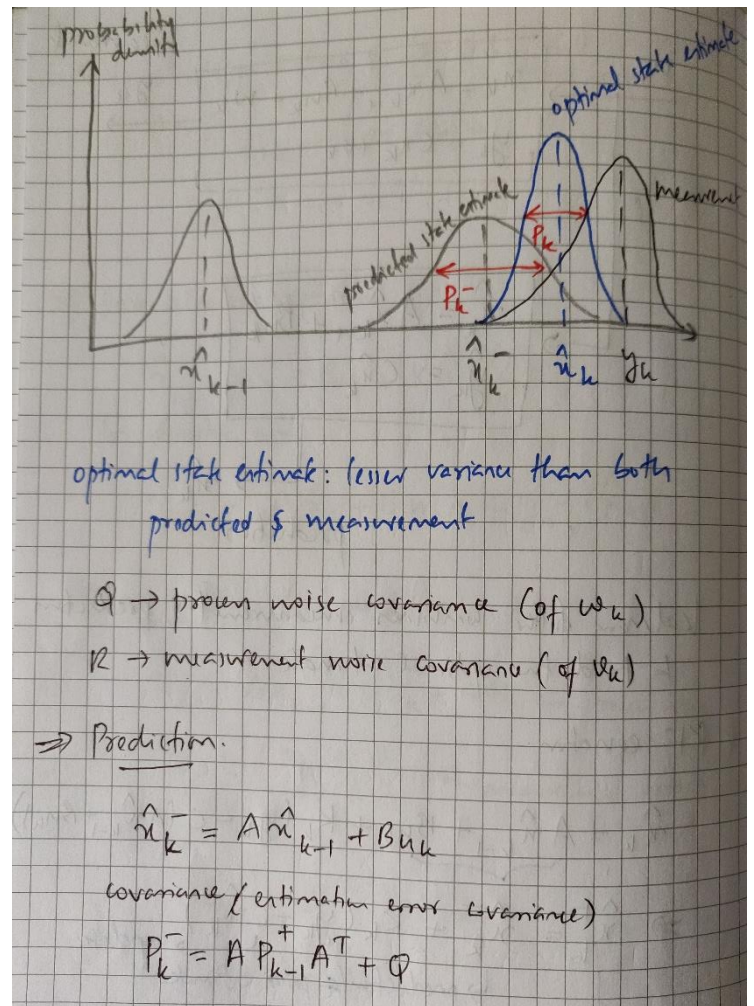 probability
density
optimal state estimate
predicted state estimate
measurement
P_k
P_k^-
x̂_{k-1}
x̂_k^-
x̂_k
y_k
optimal state estimate: lesser variance than both
predicted & measurement
Q → process noise covariance (of w_k)
R → measurement noise covariance (of v_k)
⇒ Prediction.
x̂_k^- = A x̂_{k-1} + B u_k
covariance (estimation error covariance)
P_k^- = A P_{k-1}^+ A^T + Q